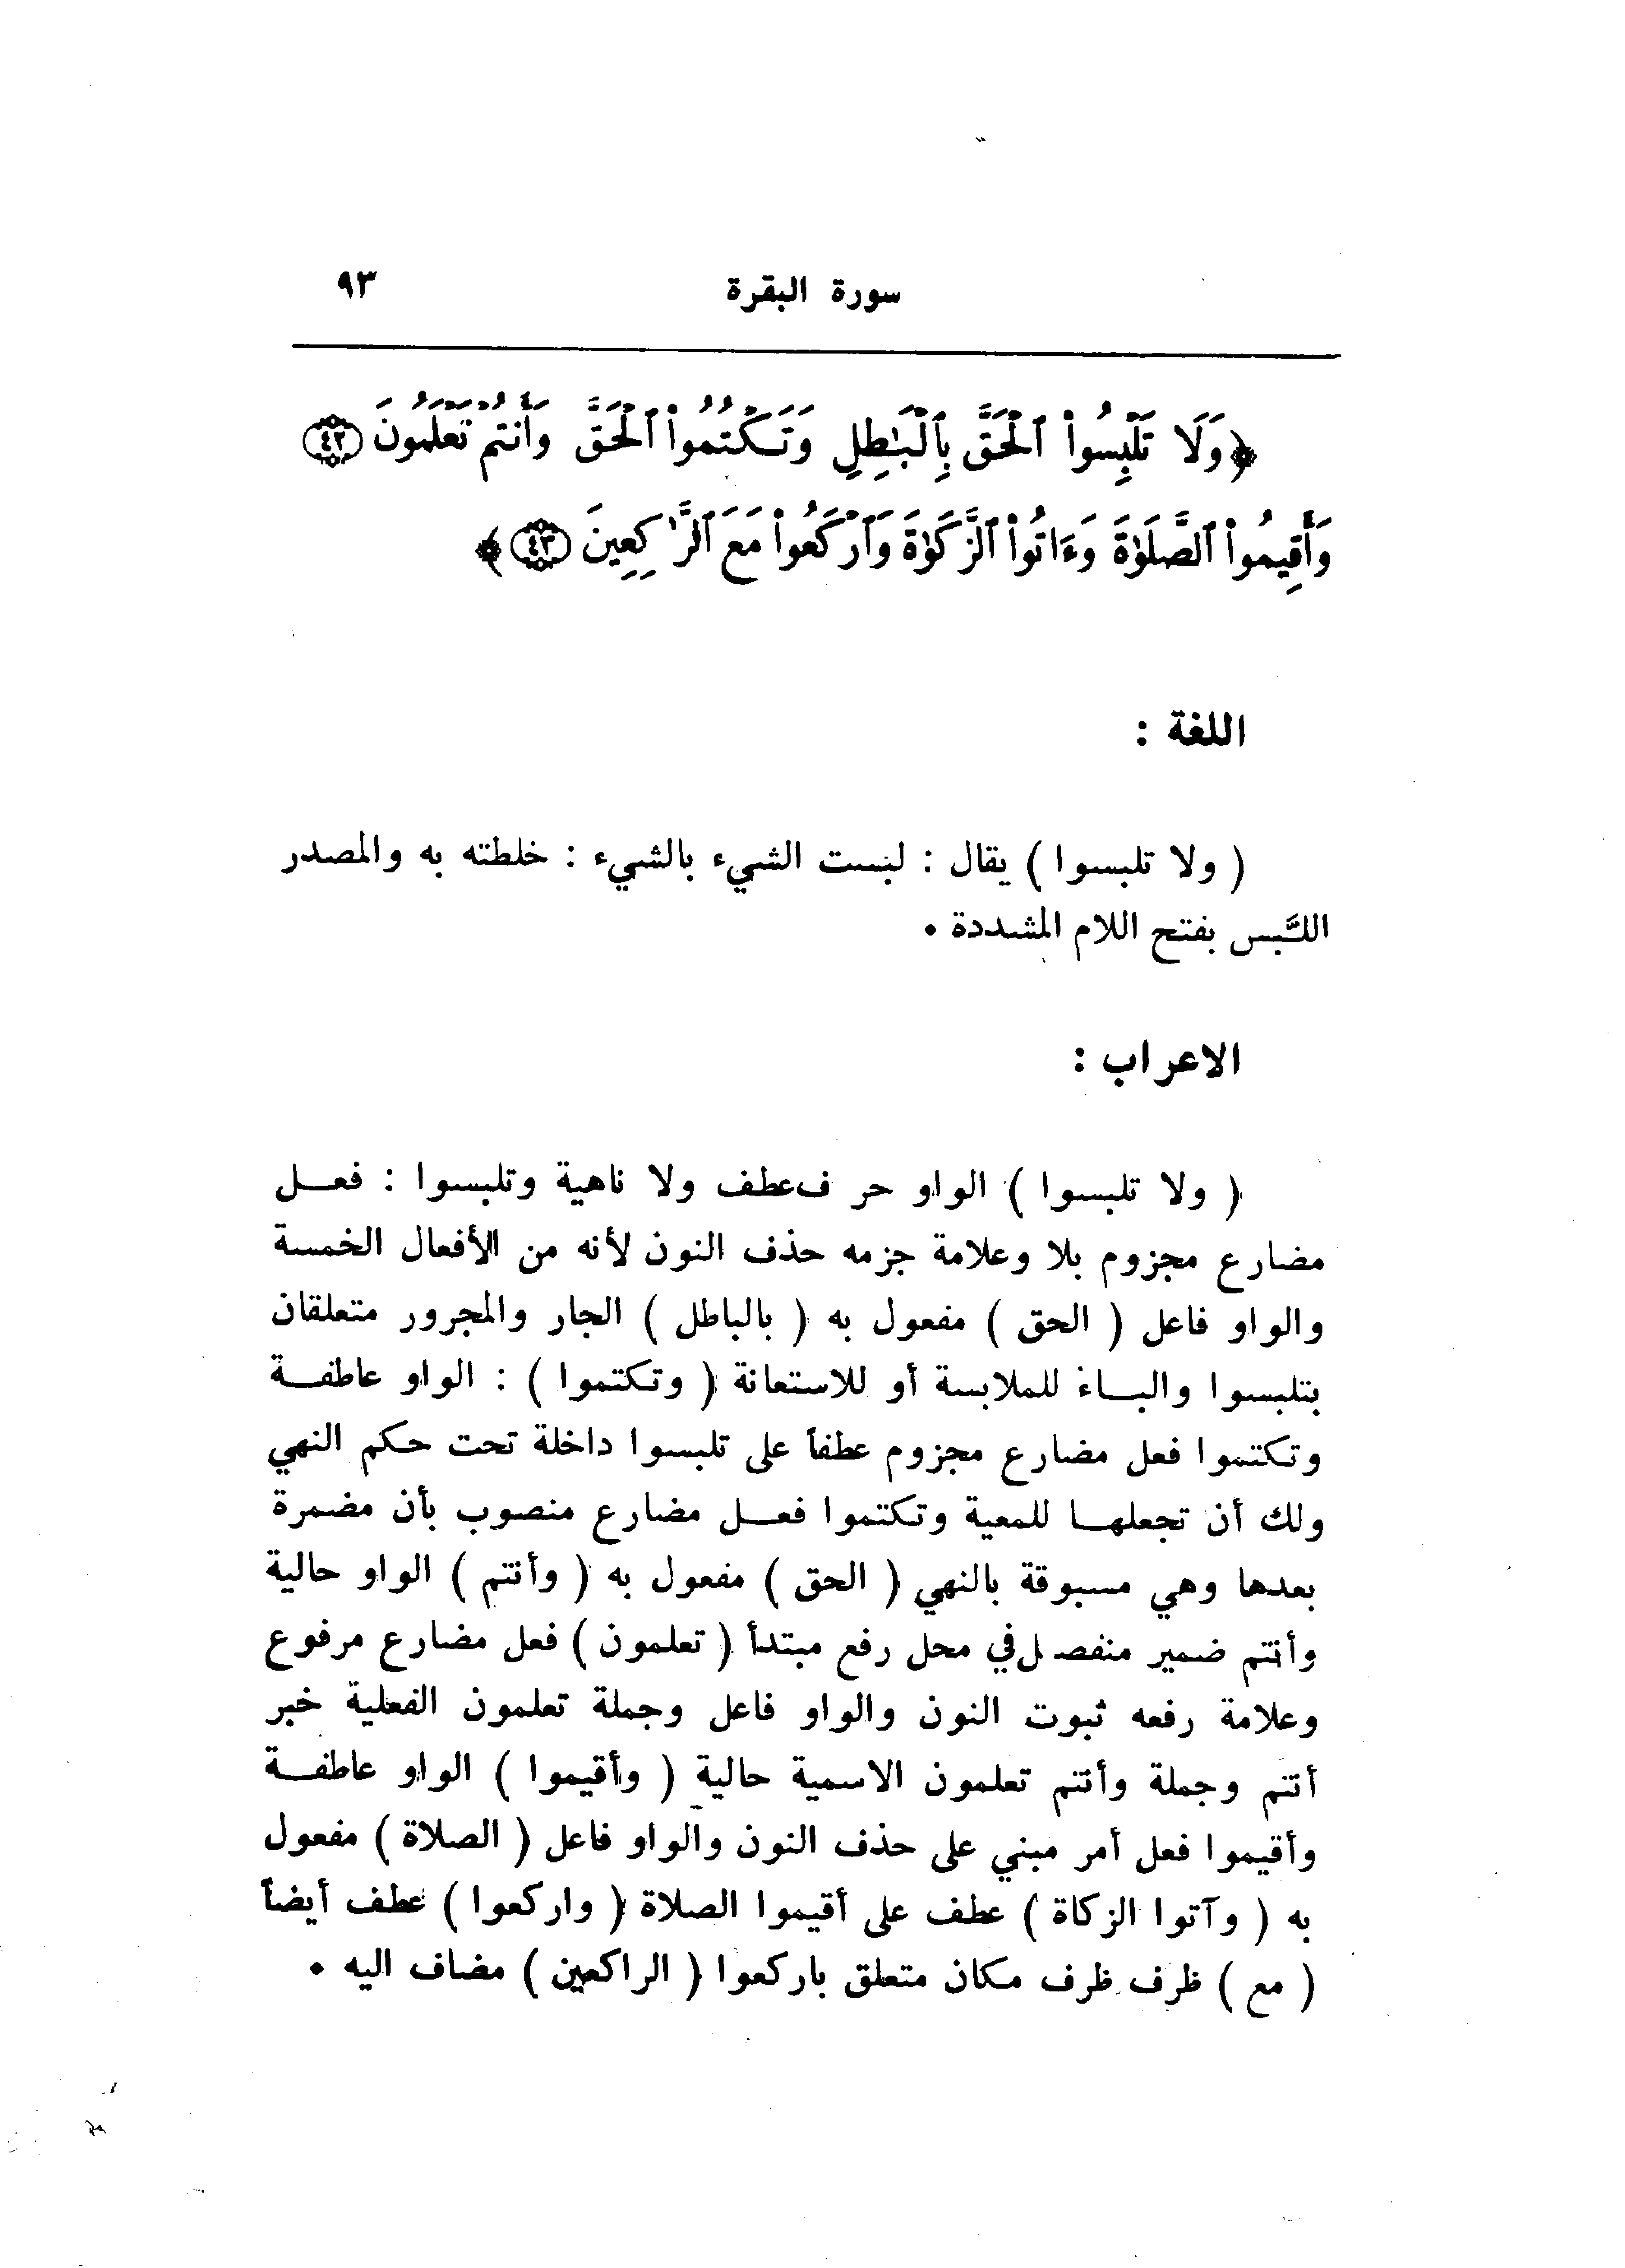 سورة البقرة ٩٣
﴿وَلَا تَلْبِسُوا۟ ٱلْحَقَّ بِٱلْبَـٰطِلِ وَتَكْتُمُوا۟ ٱلْحَقَّ وَأَنتُمْ تَعْلَمُونَ ٤٢
وَأَقِيمُوا۟ ٱلصَّلَوٰةَ وَءَاتُوا۟ ٱلزَّكَوٰةَ وَٱرْكَعُوا۟ مَعَ ٱلرَّٰكِعِينَ ٤٣﴾
اللغة :
( ولا تلبسوا ) يقال : لبست الشيء بالشيء : خلطته به والمصدر
اللَّبس بفتح اللام المشددة .
الاعراب :
( ولا تلبسوا ) الواو حر ف عطف ولا ناهية وتلبسوا : فعـل
مضارع مجزوم بلا وعلامة جزمه حذف النون لأنه من الأفعال الخمسة
والواو فاعل ( الحق ) مفعول به ( بالباطل ) الجار والمجرور متعلقان
بتلبسوا والبـاء للملابسة أو للاستعانة ( وتكتموا ) : الواو عاطفـة
وتكتموا فعل مضارع مجزوم عطفاً على تلبسوا داخلة تحت حكم النهي
ولك أن تجعلهـا للمعية وتكتموا فعـل مضارع منصوب بأن مضمرة
بعدها وهي مسبوقة بالنهي ( الحق ) مفعول به ( وأنتم ) الواو حالية
وأنتم ضمير منفصل في محل رفع مبتدأ ( تعلمون ) فعل مضارع مرفوع
وعلامة رفعه ثبوت النون والواو فاعل وجملة تعلمون الفعلية خبر
أنتم وجملة وأنتم تعلمون الاسمية حالية ( وأقيموا ) الواو عاطفـة
وأقيموا فعل أمر مبني على حذف النون والواو فاعل ( الصلاة ) مفعول
به ( وآتوا الزكاة ) عطف على أقيموا الصلاة ( واركعوا ) عطف أيضاً
( مع ) ظرف ظرف مكان متعلق باركعوا ( الراكعين ) مضاف اليه .